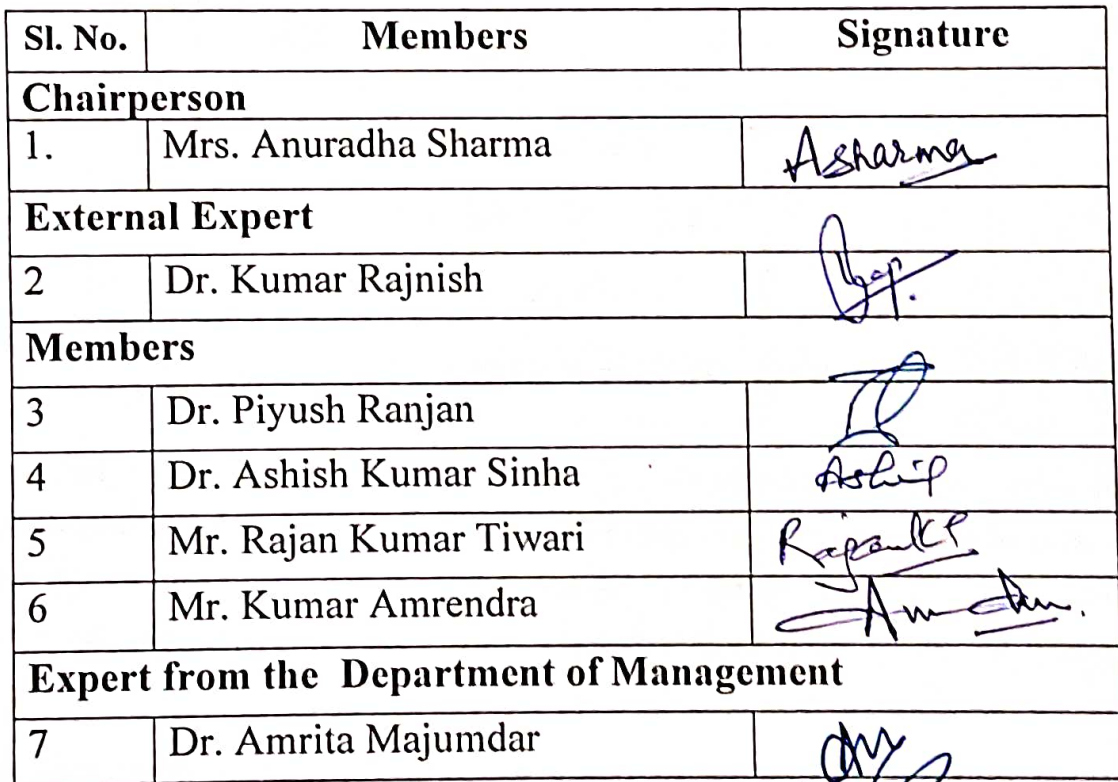 Sl. No. Members Signature
Chairperson
1. Mrs. Anuradha Sharma Asharma
External Expert
2 Dr. Kumar Rajnish
Members
3 Dr. Piyush Ranjan
4 Dr. Ashish Kumar Sinha
5 Mr. Rajan Kumar Tiwari
6 Mr. Kumar Amrendra
Expert from the Department of Management
7 Dr. Amrita Majumdar